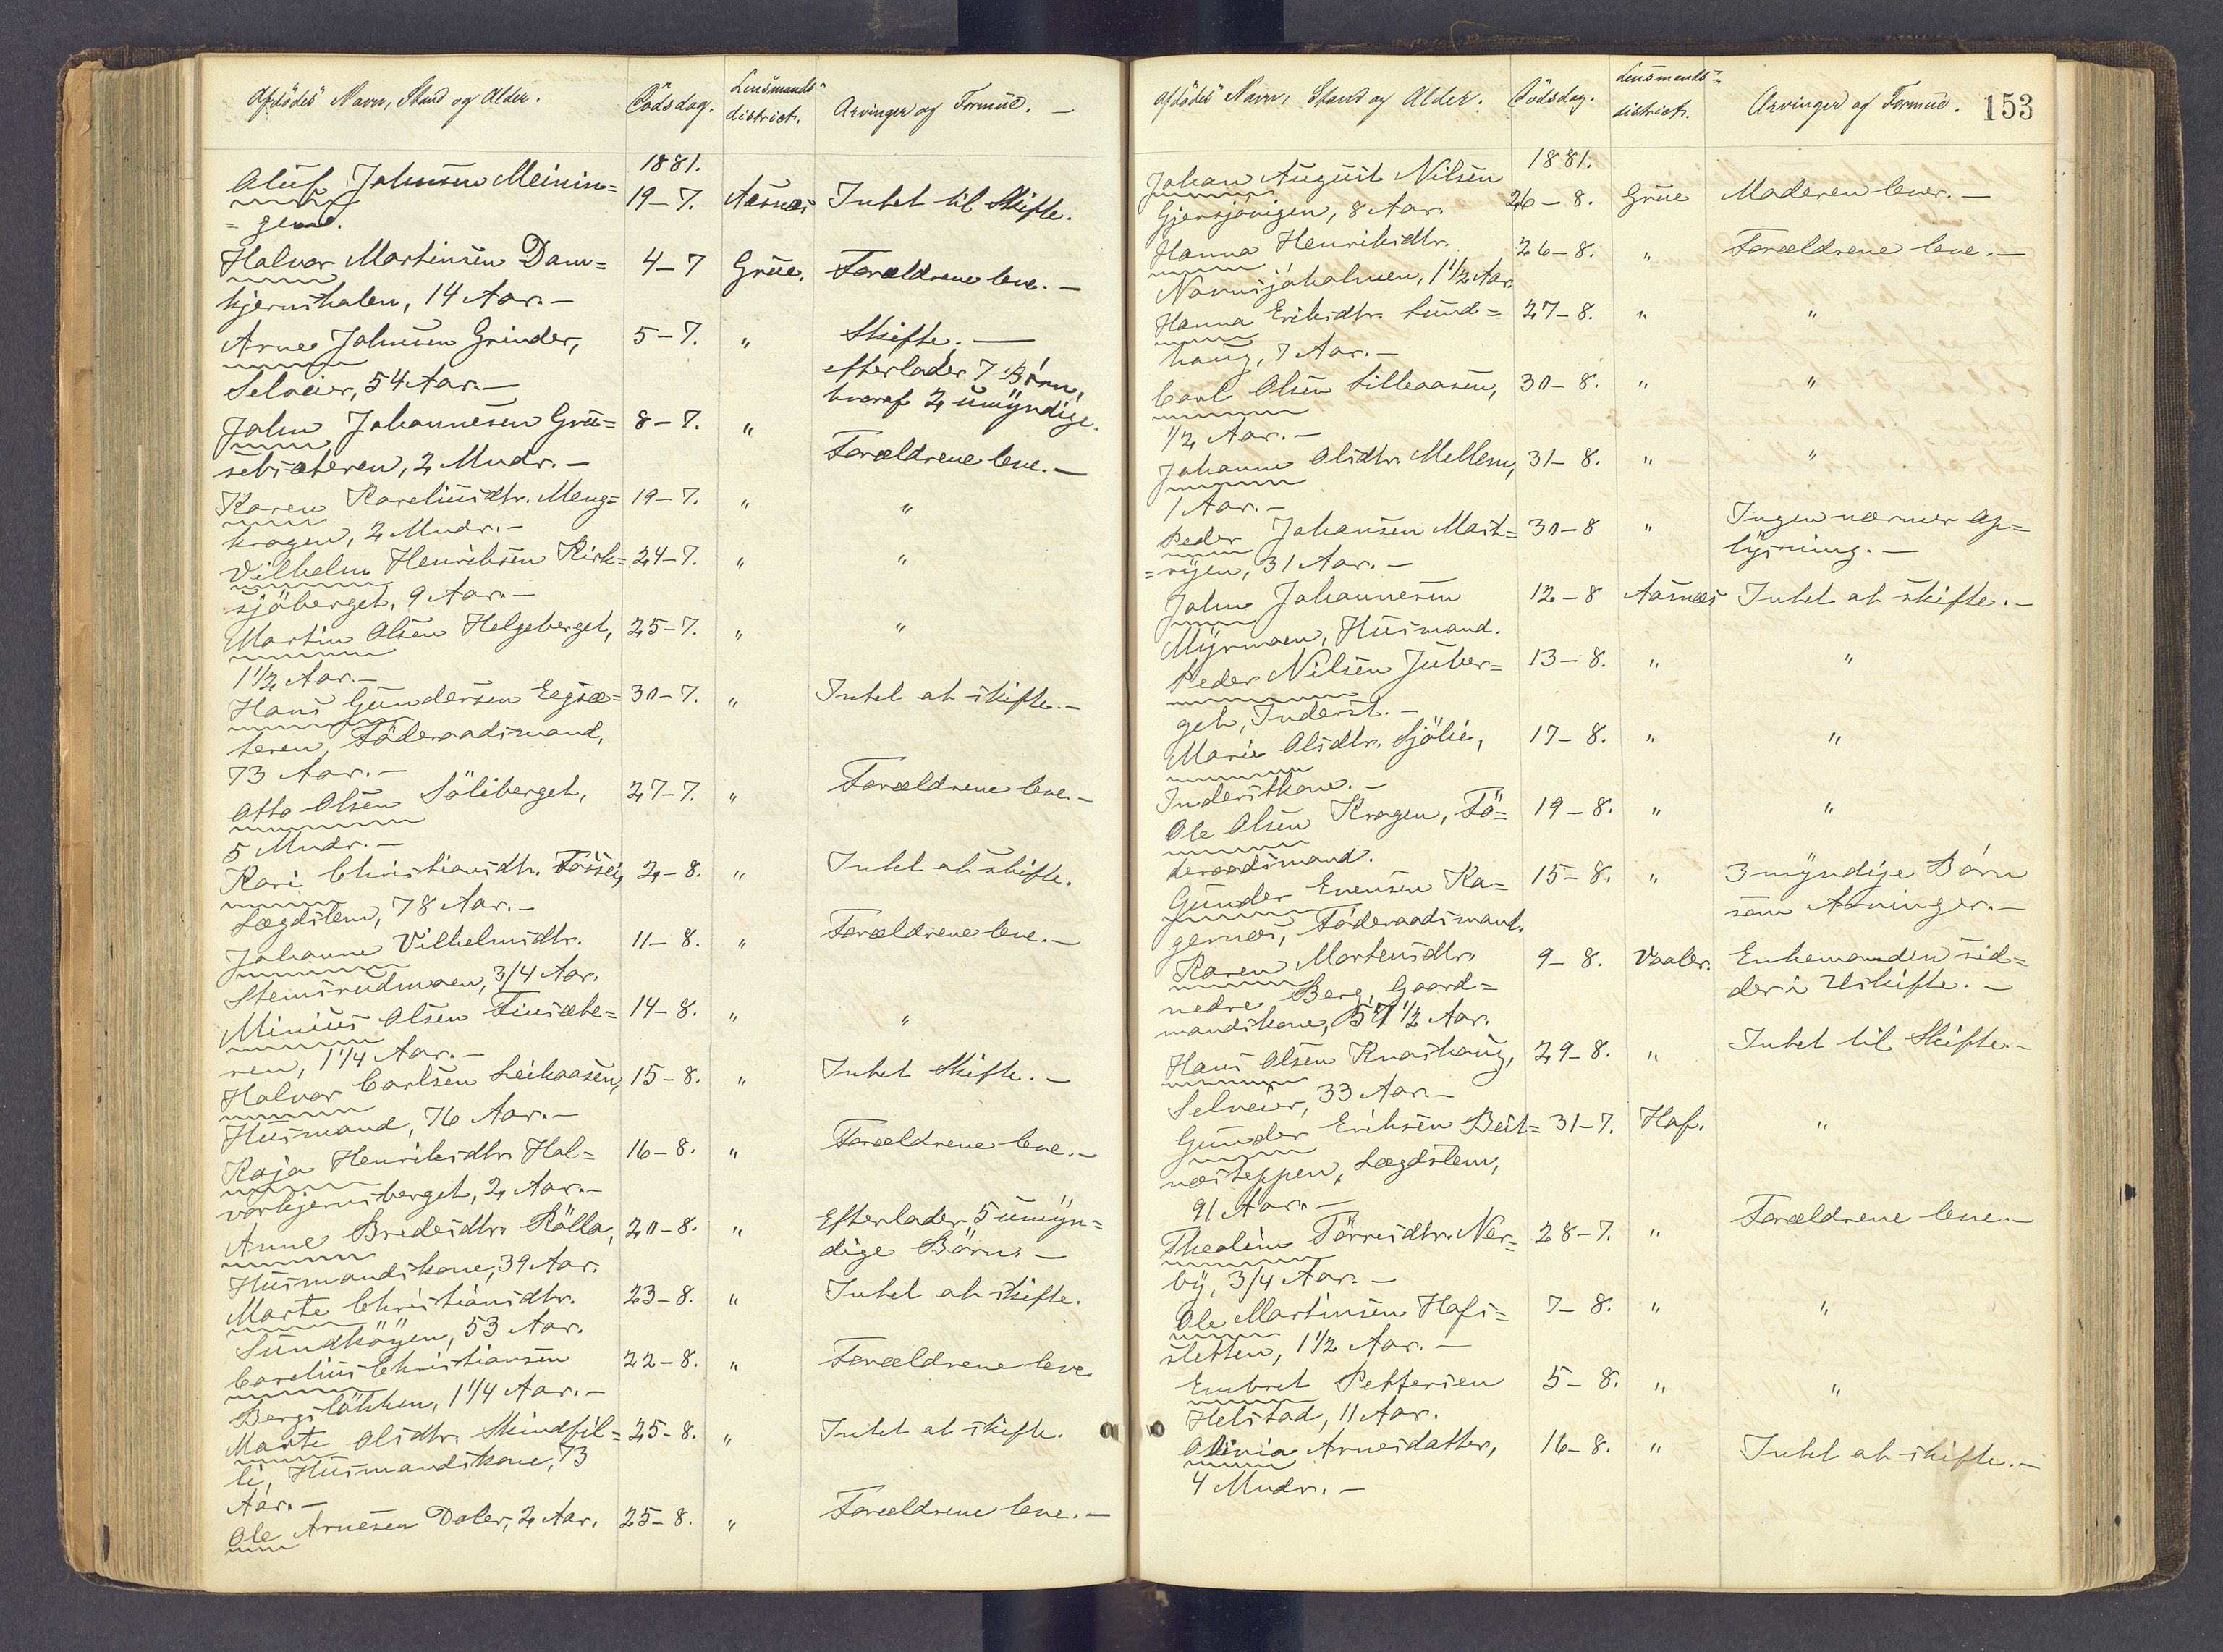 Afdödes Navn, Stand og Alder. Dödsdag. Lensmands- district. Arvinger og Formue. —
1881.
Oluf Johnsen Meinin= 19-7. Aasnæs Intet til Skifte.
=gend.
Halvor Martinsen Dam= 4-7 Grue. Forældrene leve. —
kjernshalen, 14 Aar. —
Arne Johnsen Grinder, 5-7. " Skifte. —
Selveier, 54 Aar. — efterlader 7 Börn,
hvoraf 2 umyndige.
John Johannesen Grue= 8-7. "
sebsæteren, 2 Mndr. — Forældrene leve. —
Karen Kareliusdtr. Meng= 19-7. " "
kragen, 2 Mndr. —
Vilhelm Henriksen Kirk= 24-7. " "
sjöberget, 9 Aar. —
Martin Olsen Helgeberget, 25-7. " "
1 1/2 Aar. —
Hans Gundersen Eegsæ= 30-7. " Intet at skifte. —
teren, Föderaadsmand,
73 Aar. —
Otto Olsen Söliberget, 27-7. " Forældrene leve. —
5 Mndr. —
Kari Christiansdtr. 2-8. " Intet at skifte.
Lægdslem, 78 Aar. —
Johanne Vilhelmsdtr. 11-8. " Forældrene leve. —
Stemsrudmoen, 3/4 Aar.
Minius Olsen Finsæte= 14-8. " "
ren, 1 1/4 Aar. —
Halvor Carlsen Leikaasen, 15-8. " Intet Skifte. —
Husmand, 76 Aar. —
Kaja Henriksdtr. Hal= 16-8. " Forældrene leve. —
vorkjernsberget, 2 Aar. —
Anne Bredesdtr. Kölla, 20-8. " Efterlader 5 umyn=
Husmandskone, 39 Aar. dige Börn. —
Marte Christiansdtr. 23-8. " Intet at skifte.
Sundhöyen, 53 Aar.
Carelius Christiansen 22-8. " Forældrene leve
Bergslökken, 1 1/4 Aar. —
Marte Olsdtr. Skindfil= 25-8. " Intet at skifte.
li, Husmandskone, 73
Aar. —
Ole Arnesen Doler, 2 Aar. 25-8. " Forældrene leve. —
Afdödes Navn, Stand og Alder. Dödsdag. Lensmands= district. Arvinger og Formue. 153
1881.
Johan August Nilsen
Gjersjövigen, 8 Aar. 26-8. Grue Moderen lever. —
Hanna Henriksdtr. 26-8. " Forældrene leve. —
Nornsjöholmen, 1 1/2 Aar.
Hanna Eriksdtr. Lund= 27-8. " "
haug, 7 Aar. —
Carl Olsen Lilleaasen, 30-8. " "
1/2 Aar. —
Johanne Olsdtr. Mellem, 31-8. " "
1 Aar. —
Peder Johansen Mast= 30-8 " Ingen nærmer Op=
=ryen, 31 Aar. — lysning. —
John Johannesen 12-8 Aasnæs Intet at skifte. —
Myrmoen, Husmand.
Peder Nilsen Juber= 13-8. " "
get, Inderst. —
Marie Olsdtr. Sjölie, 17-8. " "
Inderstkone. —
Ole Olsen Kragen, Fö= 19-8. " "
deraadsmand.
Gunder Evensen Ka= 15-8. " 3 myndige Börn
gernæs, Föderaadsmand. som Arvinger. —
Karen Mortensdtr. 9-8. Vaaler. Enkemanden sid=
nedre Berg, Gaard= der i Uskifte. —
mandskone, 57 1/2 Aar.
Hans Olsen Knashaug, 29-8. " Intet til Skifte. —
Selveier, 33 Aar. —
Gunder Eriksen Beit= 31-7. Hof. "
næsteppen, Lægdslem,
91 Aar. —
Thealine Törresdtr. Ner= 28-7. " Forældrene leve. —
by, 3/4 Aar. —
Ole Martinsen Hofs= 7-8. " "
sletten, 1 1/2 Aar. —
Embret Pettersen 5-8. " "
Helstad, 11 Aar.
Olinia Arnesdatter, 16-8. " Intet at skifte. —
4 Mndr. —